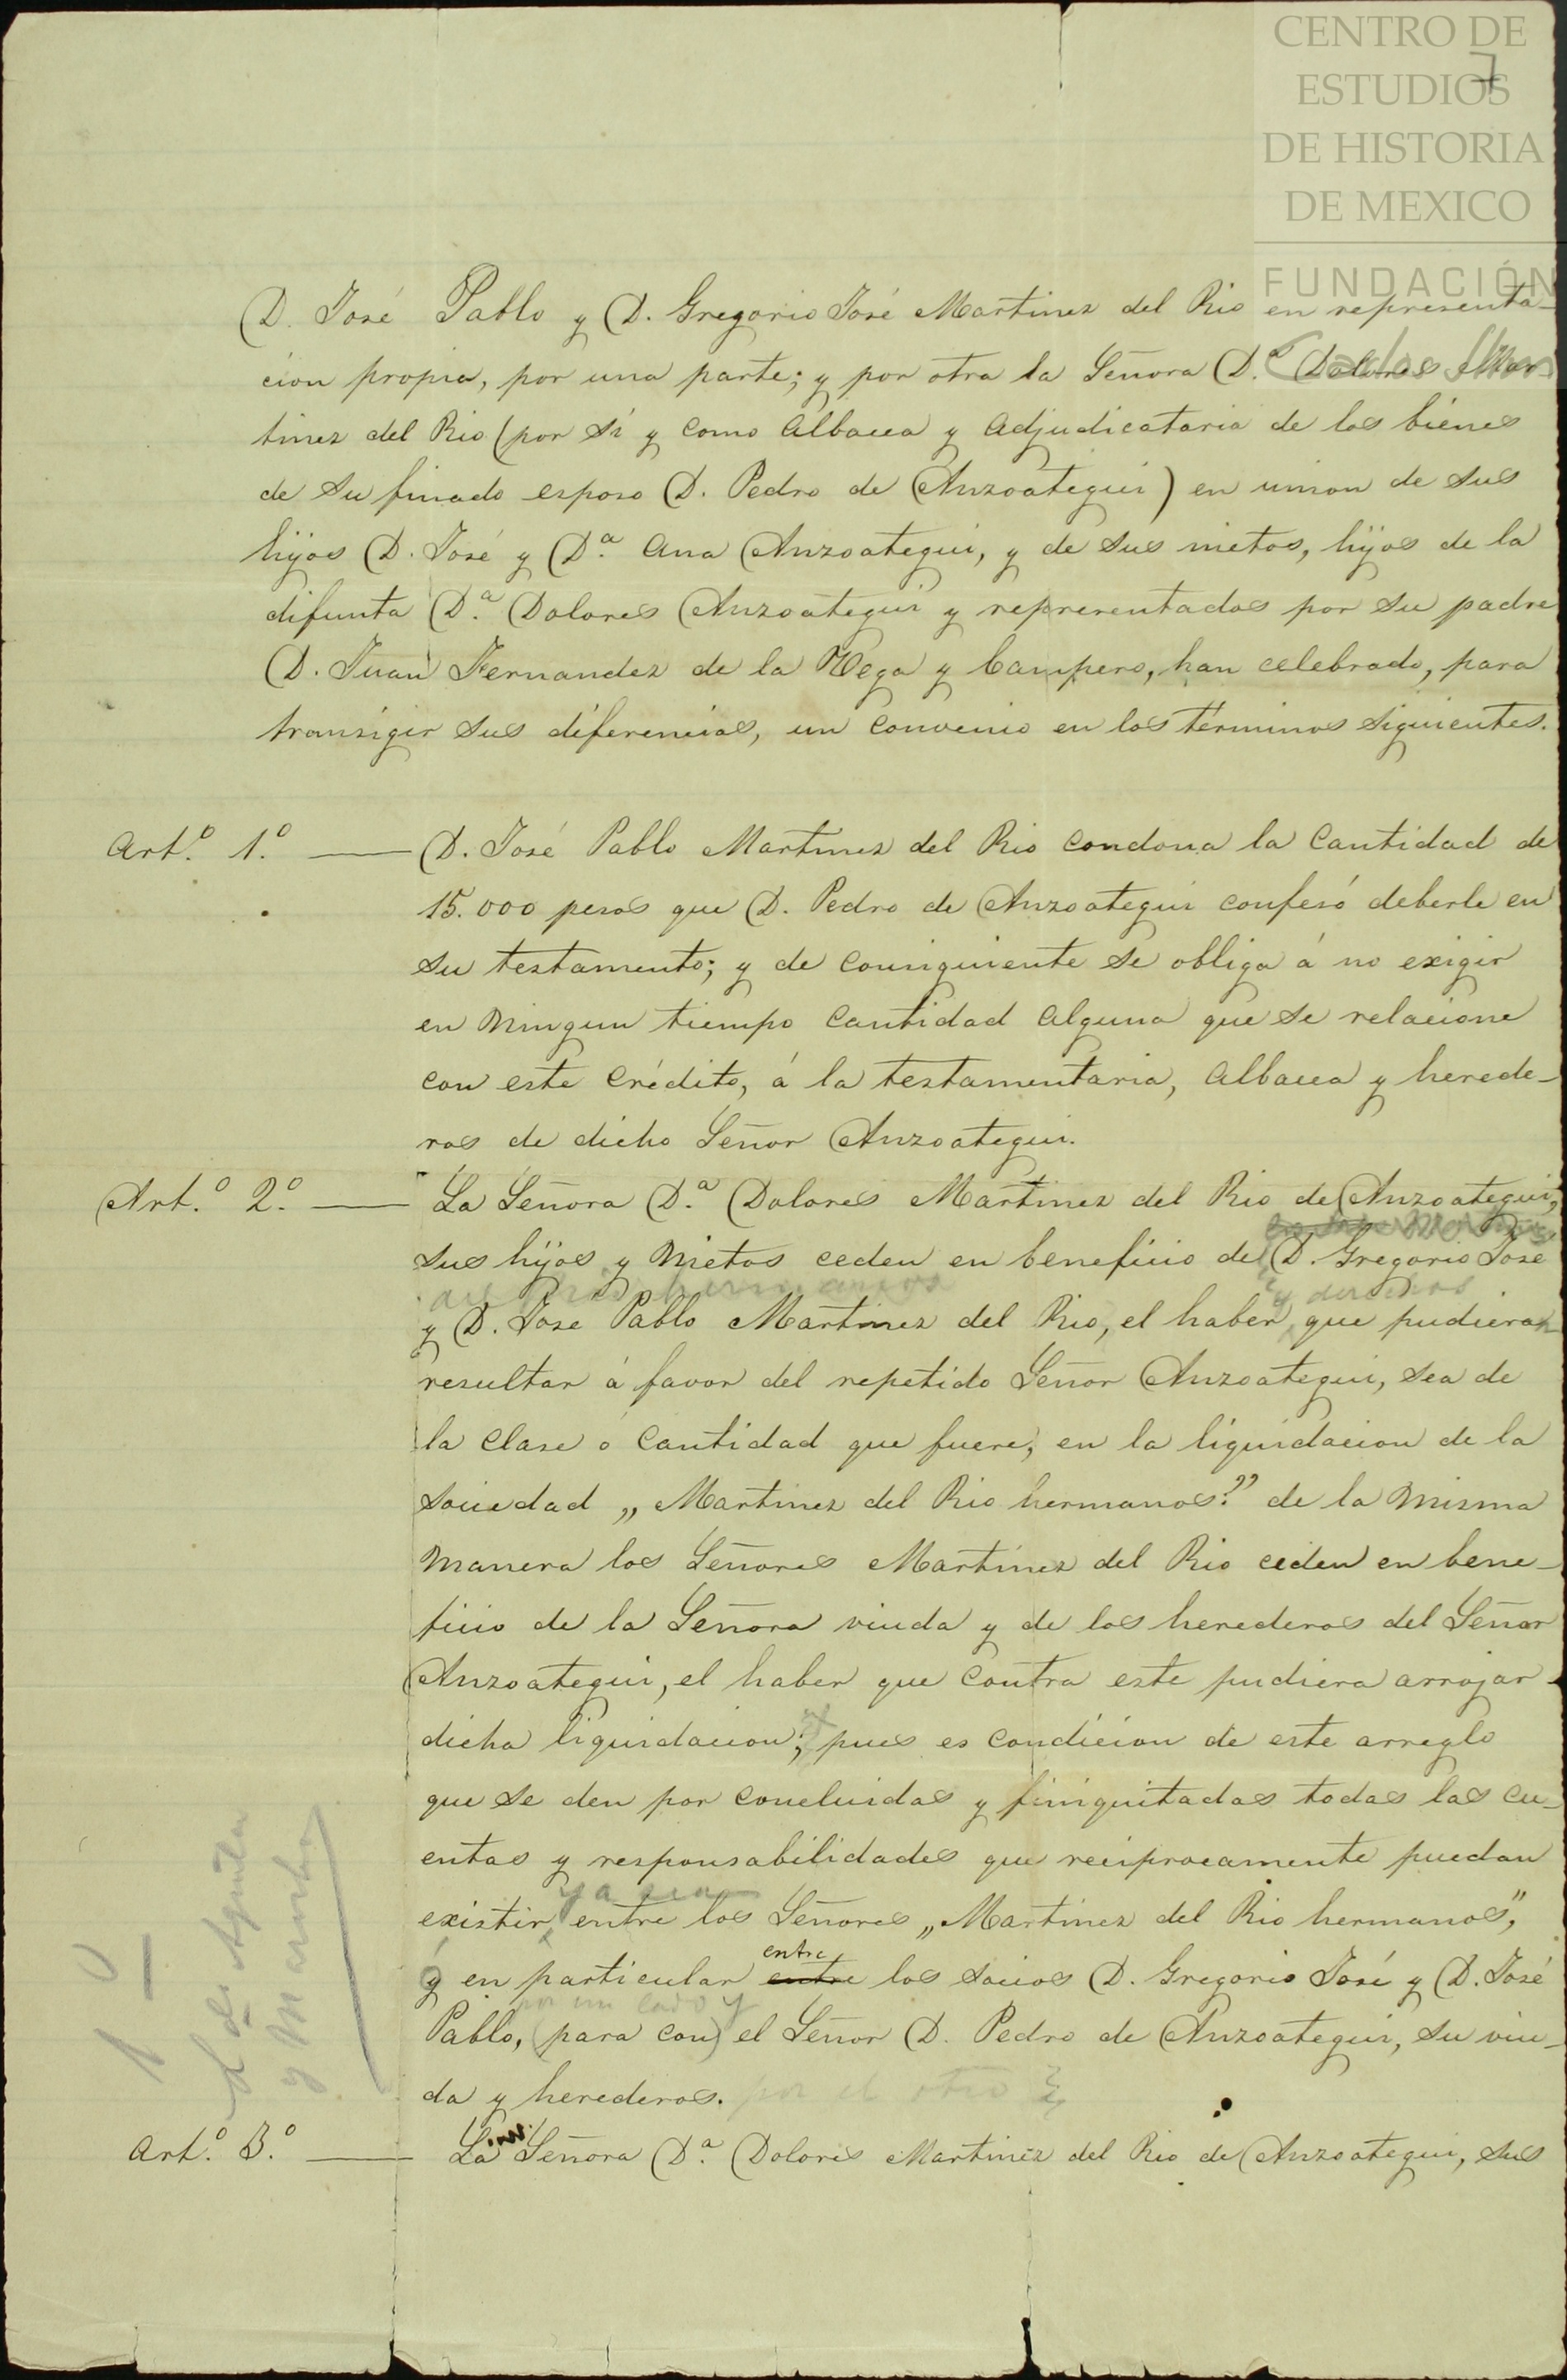 CENTRO DE
ESTUDIOS
DE HISTORIA
DE MEXICO
FUNDACIÓN
Carlos Slim
7
D. José Pablo y D. Gregorio José Martinez del Rio en representa-
cion propia, por una parte; y por otra la Señora D.ª Dolores Mar
tinez del Rio (por sí y como albacea y adjudicataria de los bienes
de su finado esposo D. Pedro de Anzoategui) en union de sus
hijos D. José y D.ª Ana Anzoategui, y de sus nietos, hijos de la
difunta D.ª Dolores Anzoategui y representados por su padre
D. Juan Fernandez de la Vega y Campero, han celebrado, para
transigir sus diferencias, un convenio en los términos siguientes.
Art.º 1.º — D. José Pablo Martinez del Rio condona la cantidad de
15.000 pesos que D. Pedro de Anzoategui confesó deberle en
su testamento; y de consiguiente se obliga á no exigir
en ningun tiempo cantidad alguna que se relacione
con este crédito, á la testamentaria, albacea y herede-
ros de dicho Señor Anzoategui.
Art.º 2.º — La Señora D.ª Dolores Martinez del Rio de Anzoategui,
sus hijos y nietos ceden en beneficio de D. Gregorio José
hermanos y derechos
y D. José Pablo Martinez del Rio, el haber, que pudieran
resultar á favor del repetido Señor Anzoategui, sea de
la clase ó cantidad que fuere, en la liquidacion de la
sociedad „Martinez del Rio hermanos:” de la misma
manera los Señores Martinez del Rio ceden en bene-
ficio de la Señora viuda y de los herederos del Señor
Anzoategui, el haber que contra este pudiera arrojar
dicha liquidacion; pues es condicion de este arreglo
que se den por concluidas y finiquitadas todas las cu-
entas y responsabilidades que reciprocamente puedan
ya sea
existir, entre los Señores „Martinez del Rio hermanos”,
entre
y en particular entre los socios D. Gregorio José y D. José
por un lado y
Pablo, (para con) el Señor D. Pedro de Anzoategui, su viu-
da y herederos. por el otro
Art.º 3.º — La Señora D.ª Dolores Martinez del Rio de Anzoategui, sus